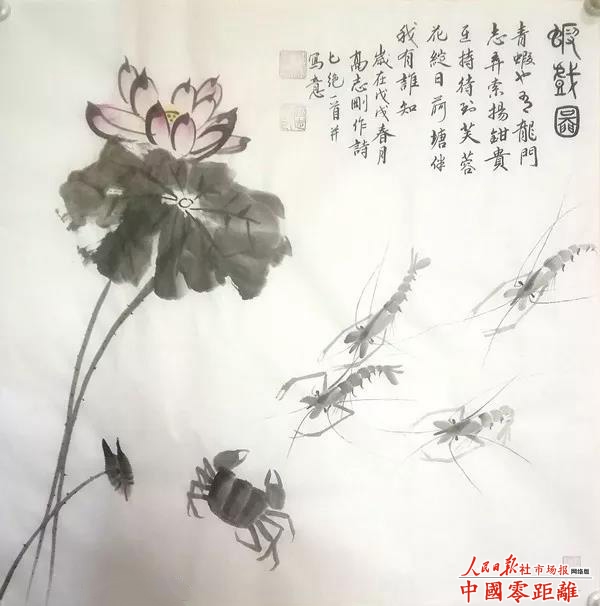 蝦戲圖
青蝦也有龍門
志弄索揚鉗貴
互持待到芙蓉
花綻日荷塘伴
我有誰知
歲在戊戌春月
高志剛作詩
七绝一首并
寫意
人民日报社市场报网络版
中國零距離